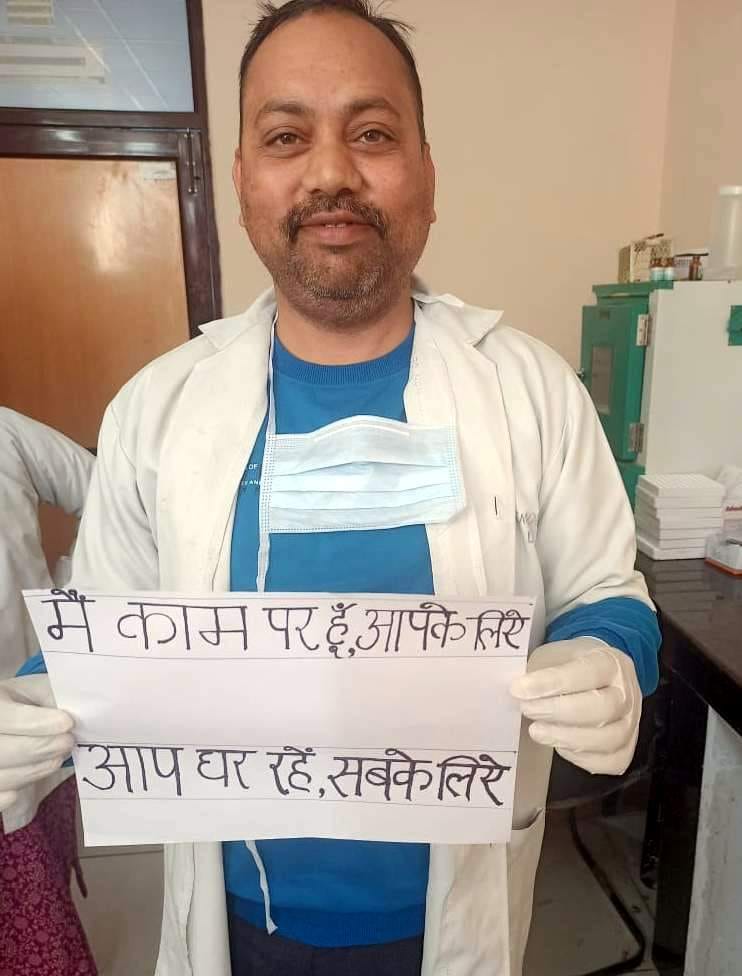 मैं काम पर हूँ, आपके लिऐ
आप घर रहें, सबके लिऐ